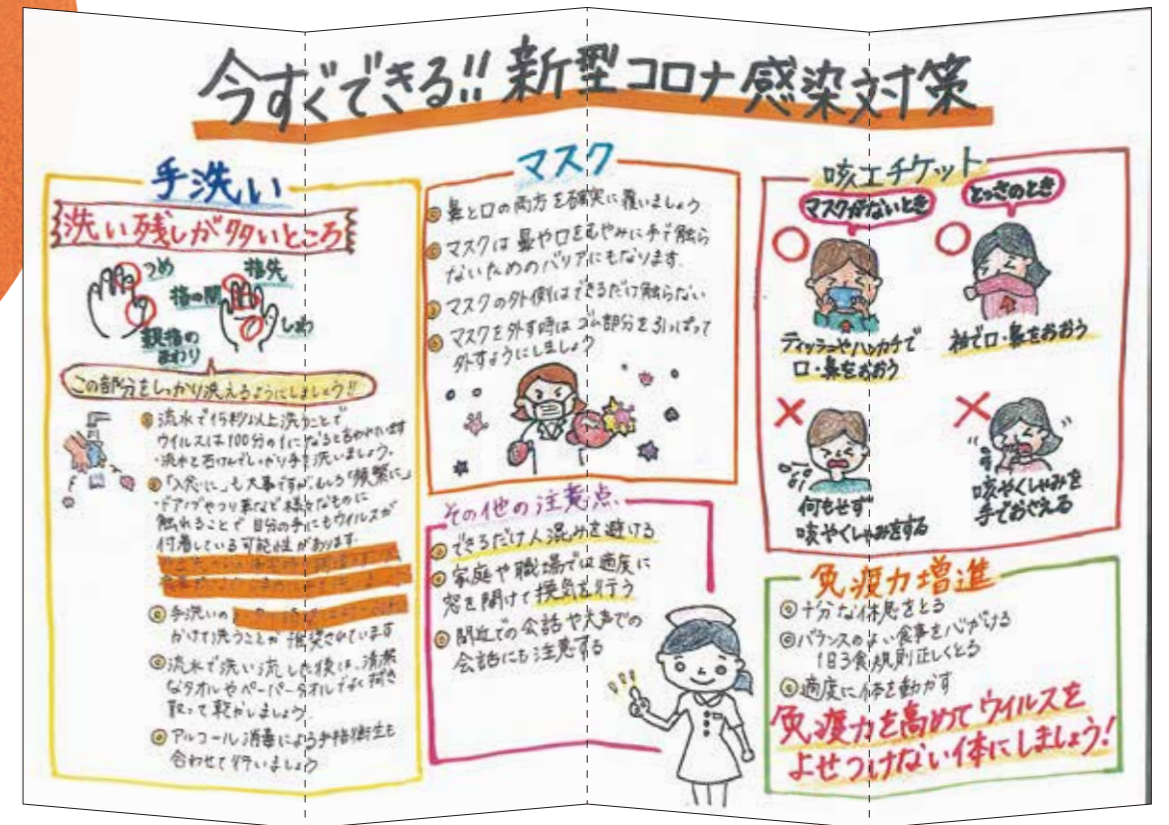 今すぐできる!! 新型コロナ感染対策
手洗い
洗い残しが多いところ
つめ
指先
指の間
しわ
親指の
まわり
この部分をしっかり洗えるようにしましょう!!
◎流水で15秒以上洗うことで
ウイルスは100分の1になると言われています
・流水と石けんでしっかり手を洗いましょう。
◎「入念に」も大事ですが、むしろ「頻繁に」
・ドアノブやつり革など様々なものに
触れることで自分の手にもウイルスが
付着している可能性があります。
◎手洗いの
かけて洗うことが推奨されています
◎流水で洗い流した後は、清潔
なタオルやペーパータオルでよく拭き
取って乾かしましょう
◎アルコール消毒による手指衛生も
合わせて行いましょう
マスク
◎鼻と口の両方を確実に覆いましょう
◎マスクは鼻や口をむやみに手で触ら
ないためのバリアにもなります。
◎マスクの外側はできるだけ触らない
◎マスクを外す時はゴム部分を引っぱって
外すようにしましょう
その他の注意点
◎できるだけ人混みを避ける
◎家庭や職場では適度に
窓を開けて換気を行う
◎間近での会話や大声での
会話にも注意する
咳エチケット
マスクがないとき
とっさのとき
ティッシュやハンカチで
口・鼻をおおう
袖で口・鼻をおおう
何もせず
咳やくしゃみをする
咳やくしゃみを
手でおさえる
免疫力増進
◎十分な休息をとる
◎バランスのよい食事を心がける
1日3食規則正しくとる
◎適度に体を動かす
免疫力を高めてウイルスを
よせつけない体にしましょう!